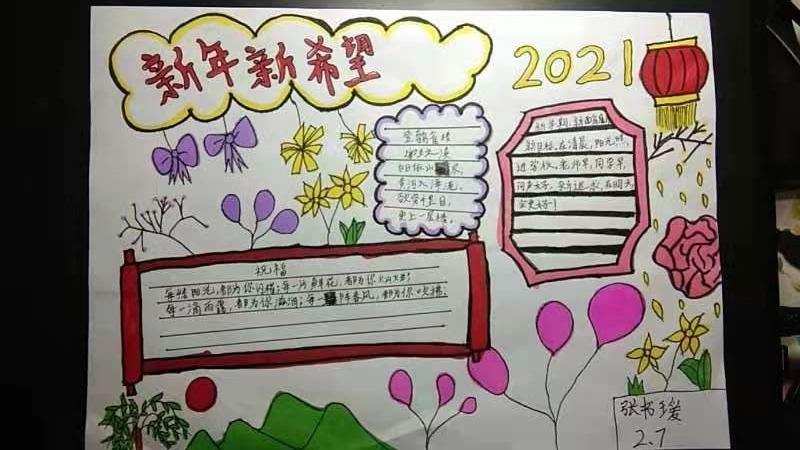 新年新希望
2021
登鹳雀楼
白日依山 尽,
黄河入海流。
欲穷千里目,
更上一层楼。
新学期,新
新目标。在清晨,阳光照,
进学校。老师早,同学早,
问声好。新 ,在明天,
会更好!
祝福
每缕阳光,都为你闪耀;每一片鲜花,都为你
每一滴雨露,都为你滋润;每一 春风,都为你吹拂。
张书瑗
2.7